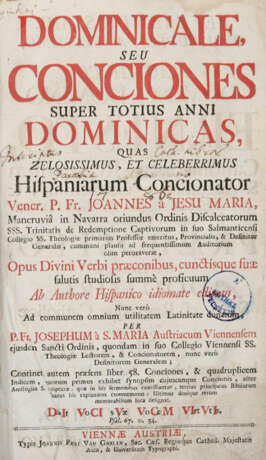 DOMINICALE,
SEU
CONCIONES
SUPER TOTIUS ANNI
DOMINICAS,
QUAS
ZELOSISSIMUS, ET CELEBERRIMUS
Hispaniarum Concionator
Vener. P. Fr. JOANNES à JESU MARIA,
Mancruviâ in Navarra oriundus Ordinis Discalceatorum
SSS. Trinitatis de Redemptione Captivorum in suo Salmanticensi
Collegio SS. Theologiæ primarius Professor emeritus, Provincialis, & Definitor
Generalis, communi plausu ad frequentissimum Auditorium
olim peroravit,
Opus Divini Verbi præconibus, cunctisque suæ
salutis studiosis summè proficuum
Ab Authore Hispanico idiomate
Nunc verò
Ad communem omnium utilitatem Latinitate
PER
P. Fr. JOSEPHUM à S. MARIA Austriacum Viennensem
ejusdem Sancti Ordinis, quondam in suo Collegio Viennensi SS.
Theologiæ Lectorem, & Concionatorem, nunc verò
Definitorem Generalem;
Continet autem præsens liber 58. Conciones, & quadruplicem
Indicem, quorum primus exhibet synopsim cujuscunque Concionis, alter
rerum
memorabilium loca designat.
Psal. 67. v. 34.
VIENNÆ AUSTRIÆ,
Typis JOANNIS PETRI VAN GHELEN, Sac. Cæs. Regiæque Catholic. Majestatis
Aulæ, & Universitatis Typographi.